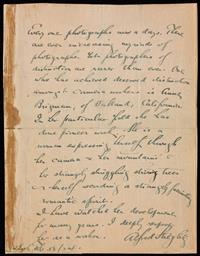 Every one photographs now a days. There
are ever increasing myriads of
photographs. Yet photographers of
distinction are rarer than ever. One
who has achieved deserved distinction
amongst camera workers is Annie
Brigman, of Oakland, California.
In her particular field she has
done pioneer work. She is a
woman expressing herself through
her camera & her mountains &
her strangely struggling shivering trees
& herself sending a strangely
romantic spirit.
I have watched her development
for many years. I deeply respect
her as a worker.
Alfred Stieglitz